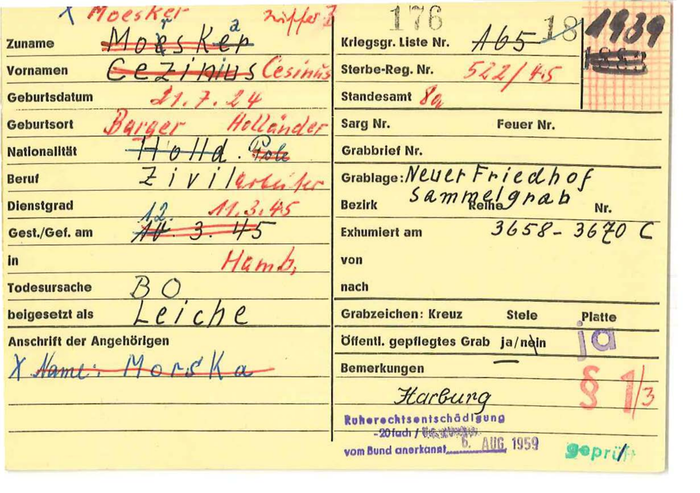 X Moesker Ziffer 2
Zuname Moesker
Vornamen Cezinius Cesinus
Geburtsdatum 21.7.24
Geburtsort Barger Holländer
Nationalität Holld. Pole
Beruf Zivilarbeiter
Dienstgrad 12. 11.3.45
Gest./Gef. am 3.45
in Hamb,
Todesursache BO
beigesetzt als Leiche
Anschrift der Angehörigen
X Name: Morska
176 18 1939
Kriegsgr. Liste Nr. A65
Sterbe-Reg. Nr. 522/45
Standesamt 8a
Sarg Nr. Feuer Nr.
Grabbrief Nr.
Grablage: Neuer Friedhof
Sammelgrab
Bezirk Reihe Nr.
Exhumiert am 3658-3670 C
von
nach
Grabzeichen: Kreuz Stele Platte
Öffentl. gepflegtes Grab ja/nein ja
Bemerkungen § 1/3
Harburg
Ruherechtsentschädigung
-20fach /
vom Bund anerkannt 6. AUG. 1959
geprüft